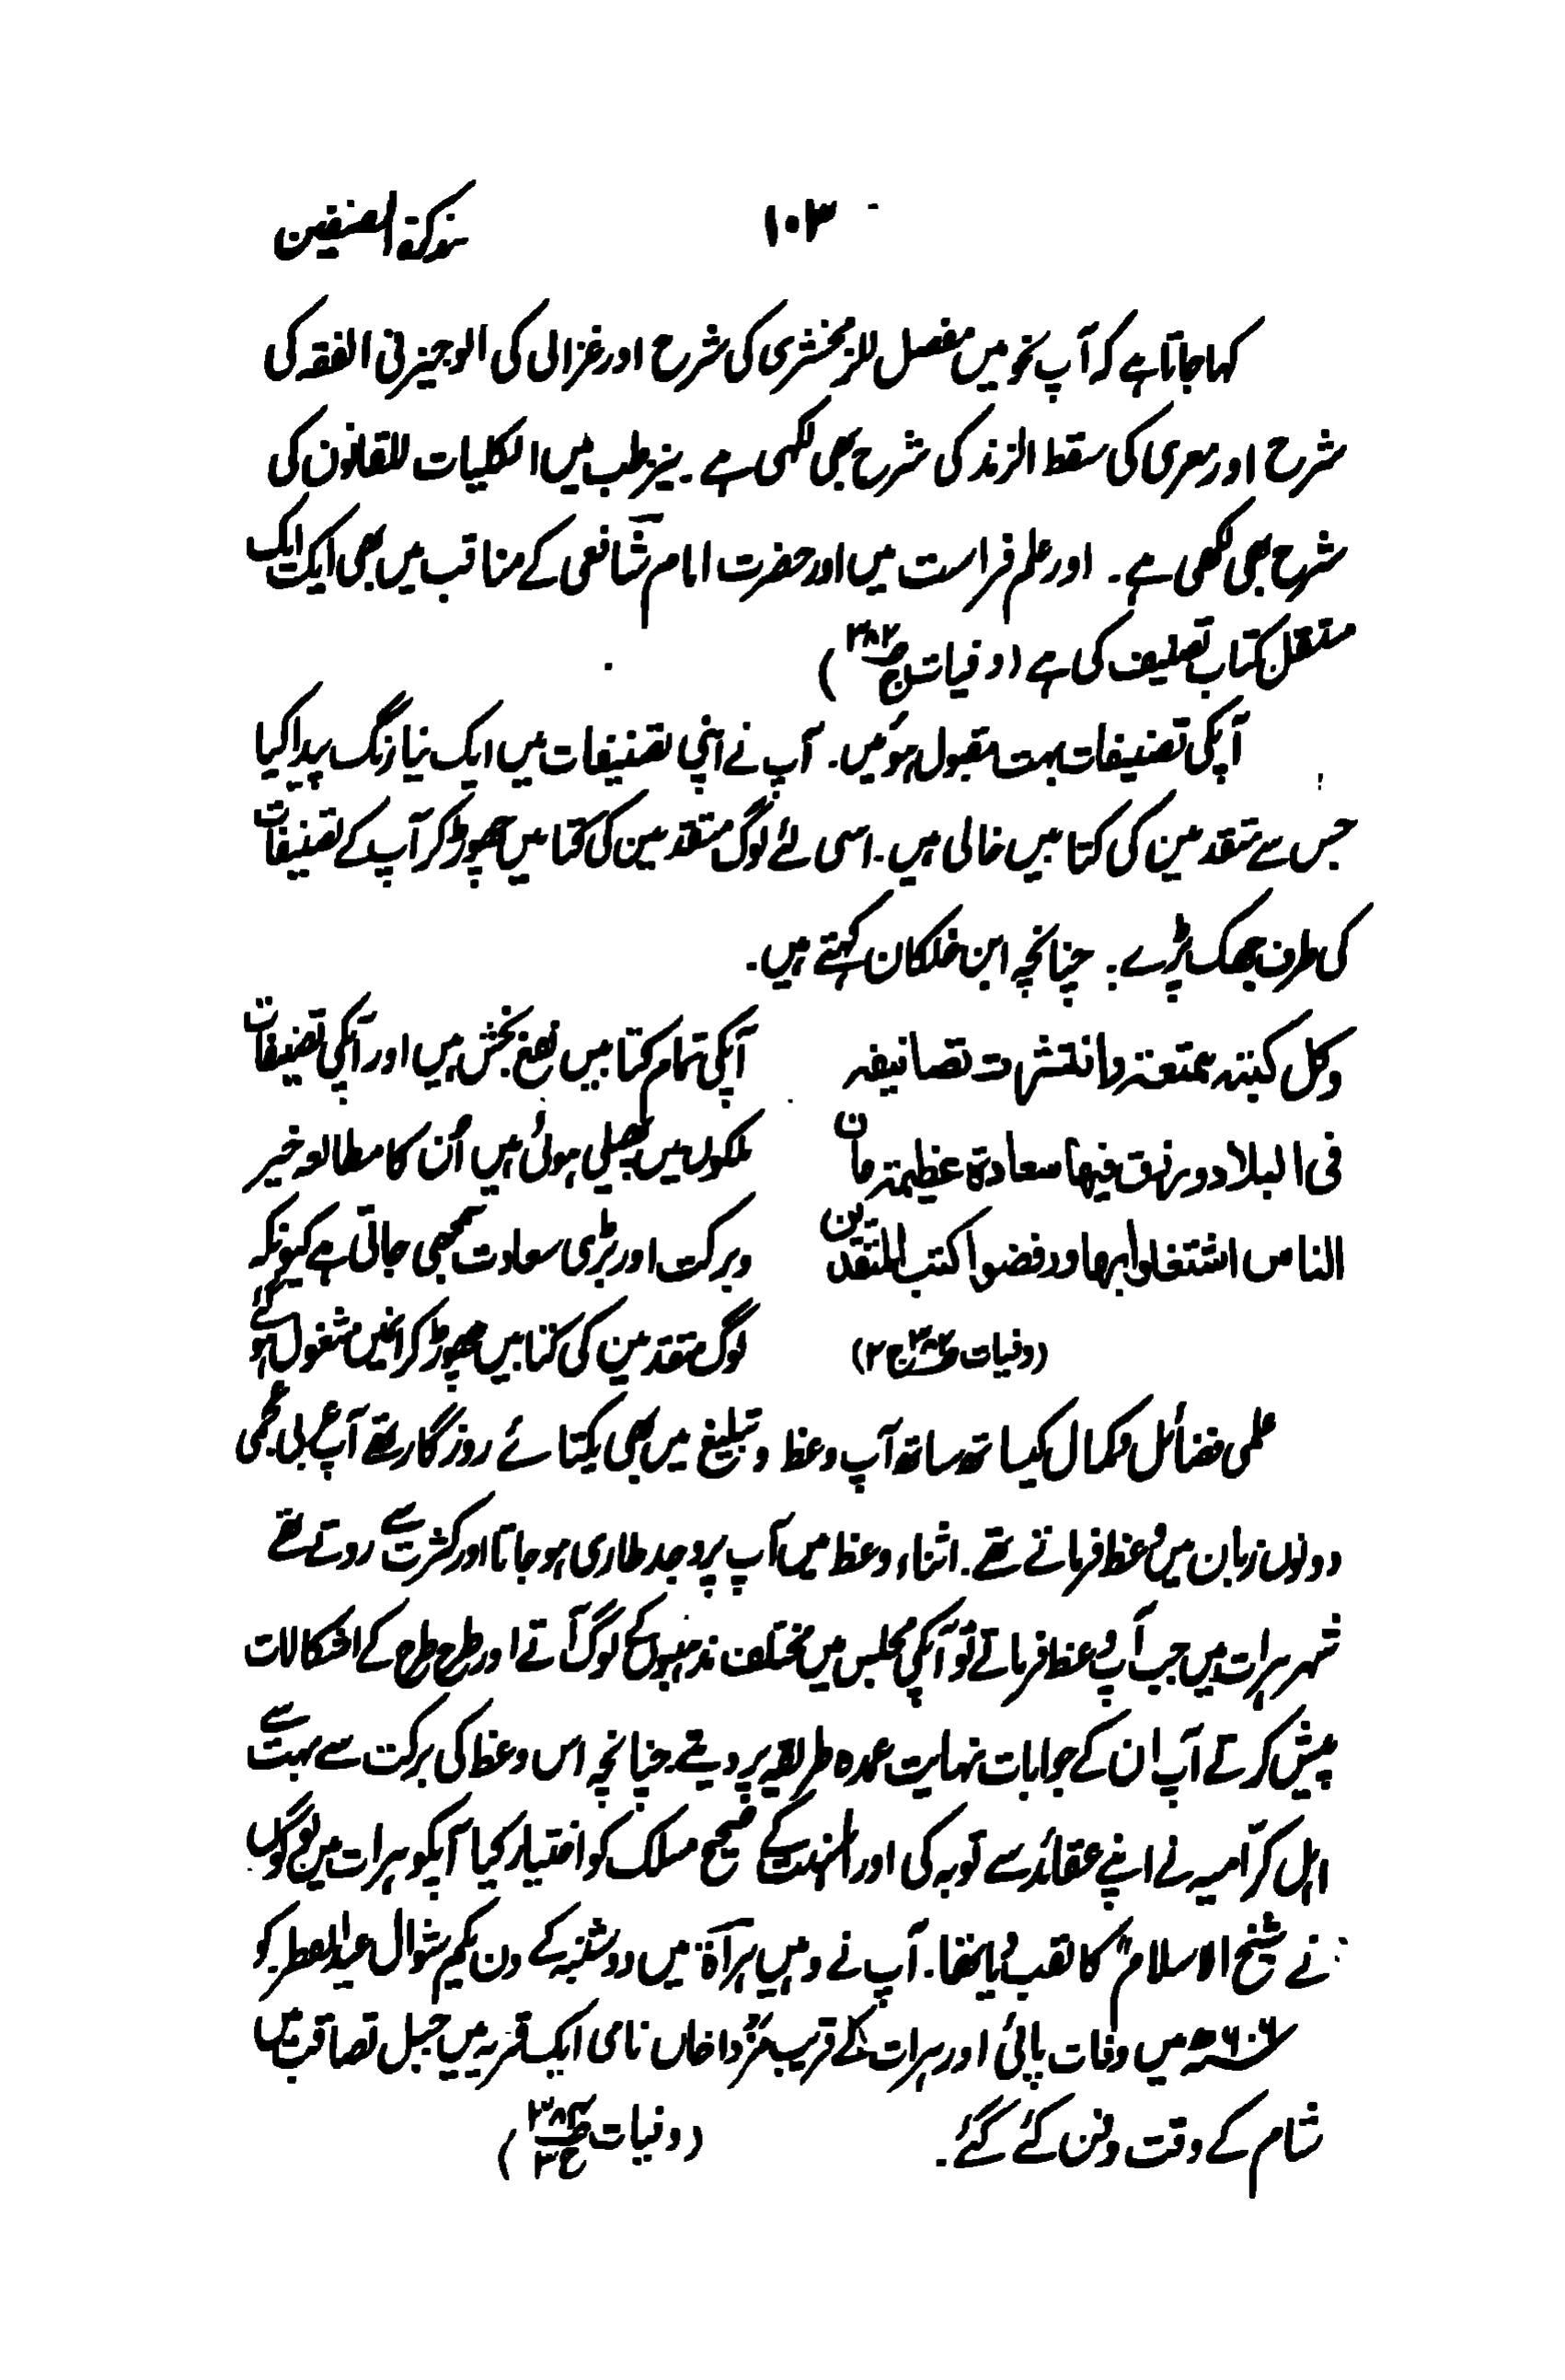 تذکرة المصنفین
۱۰۳
کہا جاتا ہے کہ آپ نحو میں مفصل للزمخشری کی شرح اور غزالی کی الوجیز فی الفقہ کی
شرح اور معری کی سقط الزند کی شرح بھی لکھی ہے ۔ نیز طب میں الکلیات للقانون کی
شرح بھی لکھی ہے ۔ اور علم فراست میں اور حضرت امام شافعی کے مناقب میں بھی ایک ایک
مستقل کتاب تصنیف کی ہے (وفیات
آپکی تصنیفات بہت مقبول ہوئیں ۔ آپ نے اپنی تصنیفات میں ایک نیا رنگ پیدا کیا
جس سے متقدمین کی کتابیں خالی ہیں ۔ اسی لئے لوگ متقدمین کی کتابیں چھوڑ کر آپ کے تصنیفات
کی طرف جھک پڑے : چنانچہ ابن خلکان کہتے ہیں ۔
وکل کتبہ ممتعة وانتشرت تصانیفہ
فی البلاد ورزق فیھا سعادة عظیمة فان
الناس اشتغلوا بھا ورفضوا کتب المتقدمین
(وفیات ص۳۸۲ ج ۲)
آپکی تمام کتابیں نفع بخش ہیں اور آپکی تصنیفات
ملکوں میں پھیلی ہوئی ہیں اُن کا مطالعہ خیر
و برکت اور بڑی سعادت سمجھی جاتی ہے کیونکہ
لوگ متقدمین کی کتابیں چھوڑ کر انہیں مشغول ہو گئے
علمی فضائل و کمال کیساتھ ساتھ آپ وعظ و تبلیغ میں بھی یکتائے روزگار تھے آپ عربی عجمی
دونوں زبان میں وعظ فرماتے تھے ۔ اثناء وعظ میں آپ پر وجد طاری ہو جاتا اور کثرت سے روتے تھے
شہر ہرات میں جب آپ وعظ فرماتے تو آپکی مجلس میں مختلف مذہبوں کے لوگ آتے اور طرح طرح کے اشکالات
پیش کرتے آپ ان کے جوابات نہایت عمدہ طریقہ پر دیتے ۔ چنانچہ اس وعظ کی برکت سے بہت سے
اہل کرامیہ نے اپنے عقائد سے توبہ کی اور اہلسنت کے صحیح مسلک کو اختیار کیا آپکو ہرات میں لوگوں
نے شیخ الاسلام" کا لقب دیا تھا ۔ آپ نے وہیں ہرآة میں دوشنبہ کے دن یکم شوال عید الفطر کو
۶۰۶ھ میں وفات پائی اور ہرات کے قریب مزداخاں نامی ایک قریہ میں جبل تصاقب میں
شام کے وقت دفن کئے گئے ۔ (وفیات ص۳۸۴ ج۳)